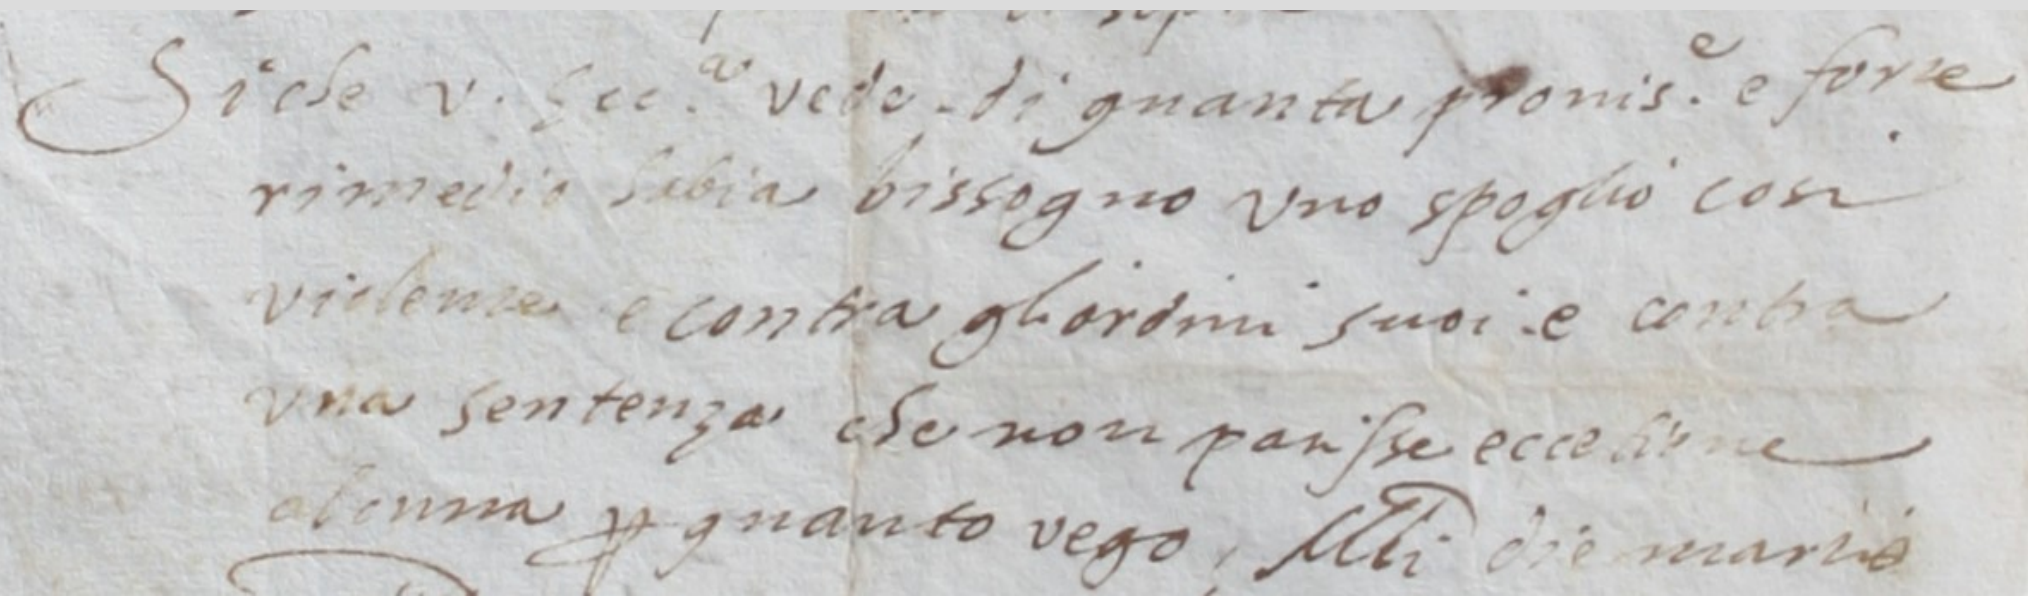 Si che v. Ecc.a vede di quanta provis.e e forze
rimedio habia bissogno uno spoglio cosi
violente e contra gli ordini suoi e contra
una sentenza che non patisse eccetione
alcuna p quanto vego, die martis